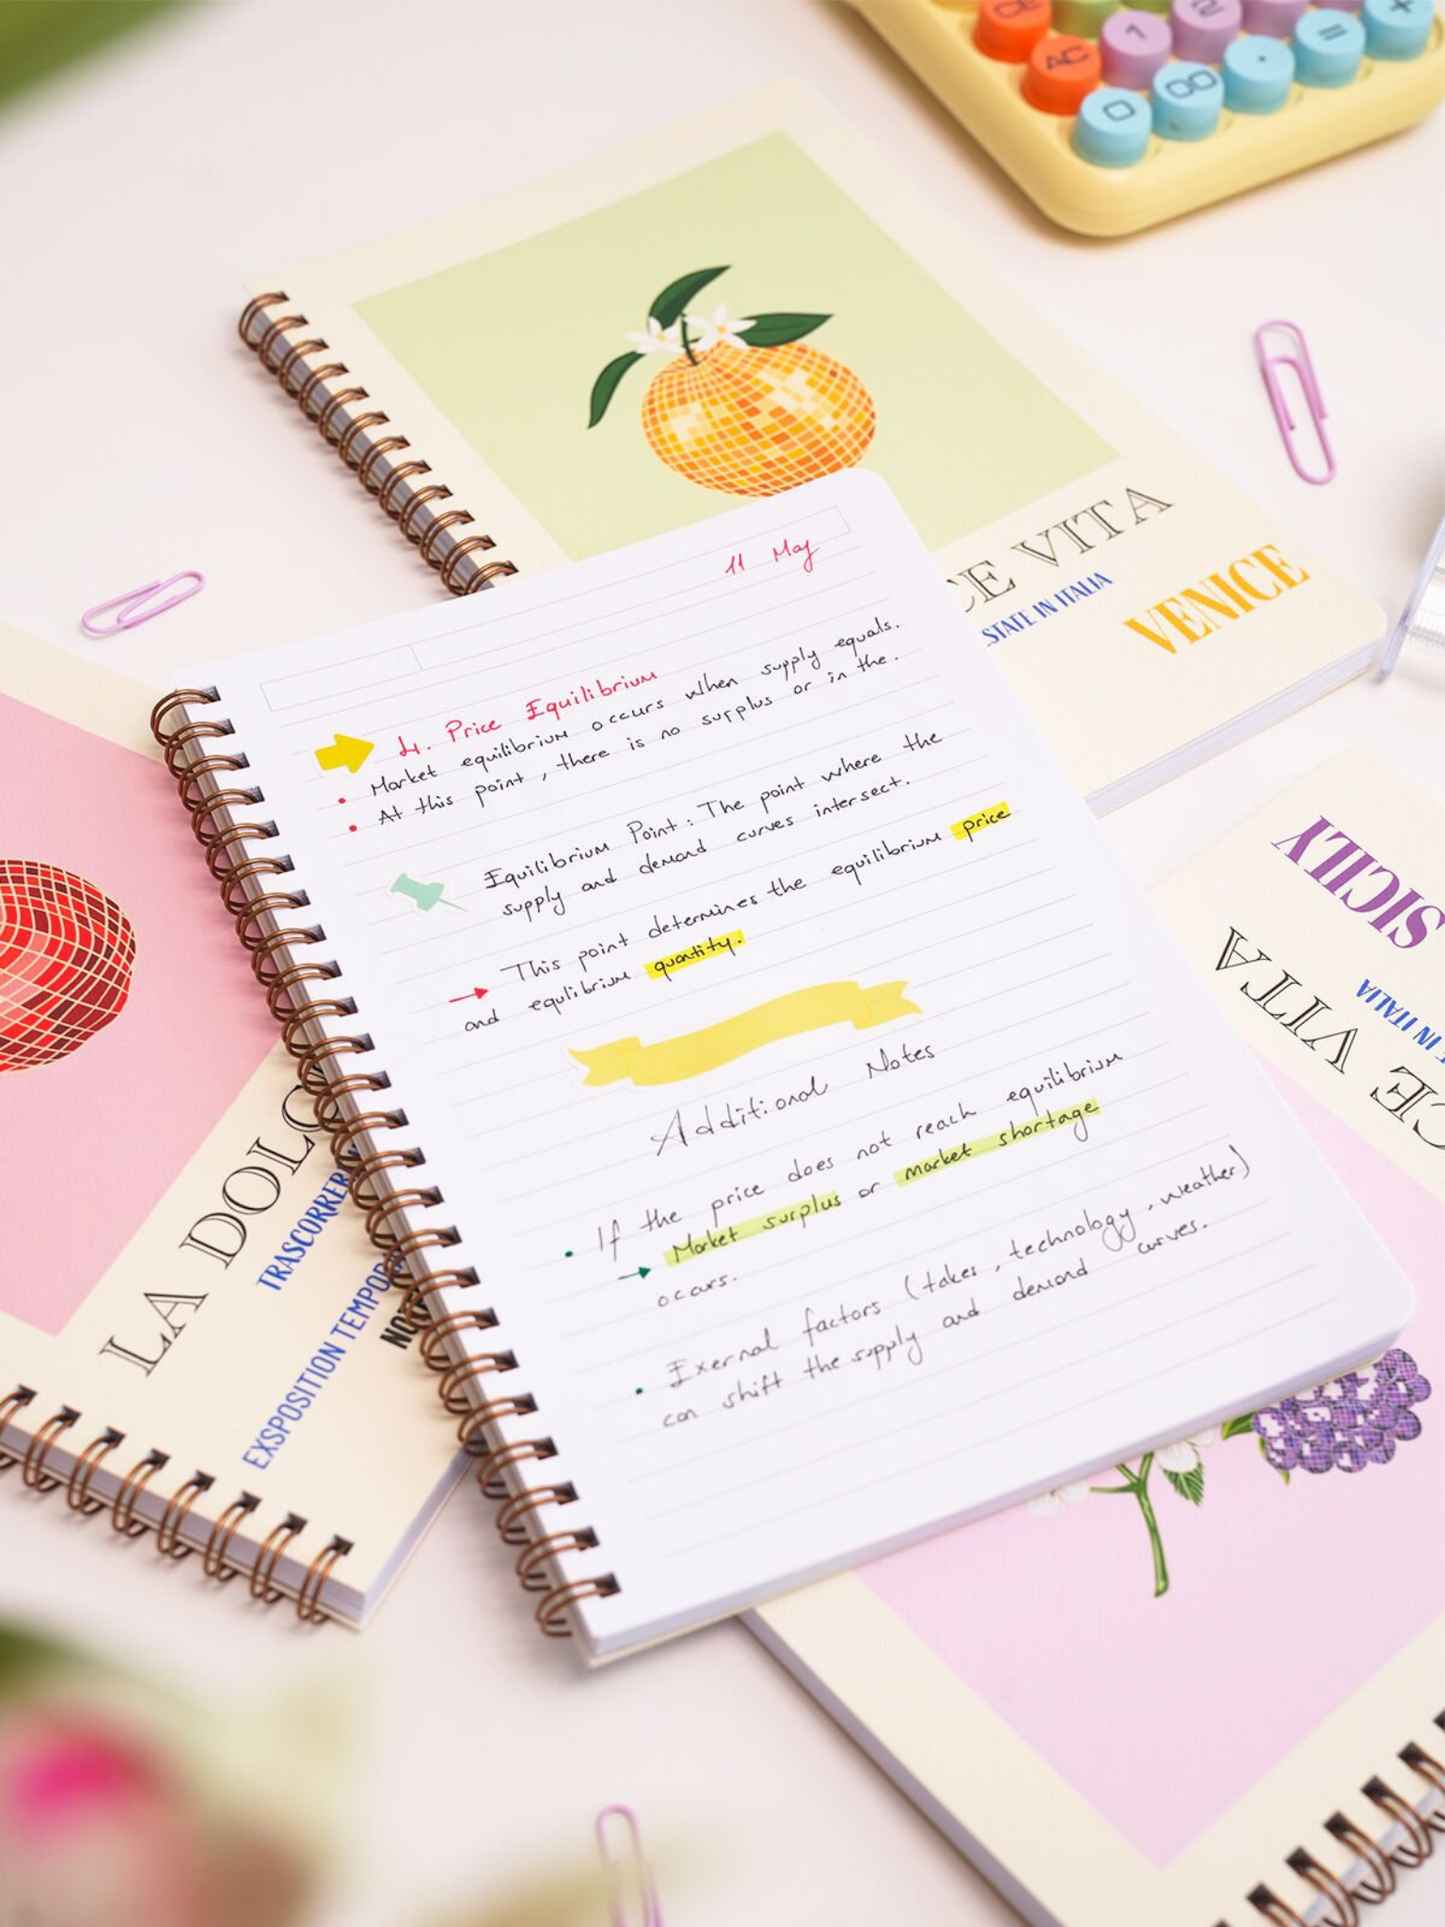 CE
AC
1
2
+
0
00
.
=
CE VITA
STATE IN ITALIA
VENICE
11 May
4. Price Equilibrium
• Market equilibrium occurs when supply equals.
• At this point, there is no surplus or in the.
Equilibrium Point: The point where the
supply and demand curves intersect.
→ This point determines the equilibrium price
and equlibrium quantity.
Additional Notes
• If the price does not reach equilibrium
→ Market surplus or market shortage
occurs.
• Exernal factors (takes, technology, weather)
can shift the supply and demand curves.
LA DOLC
TRASCORRERE
EXSPOSITION TEMPORA
NOT
SICILY
IN ITALIA
CE VITA